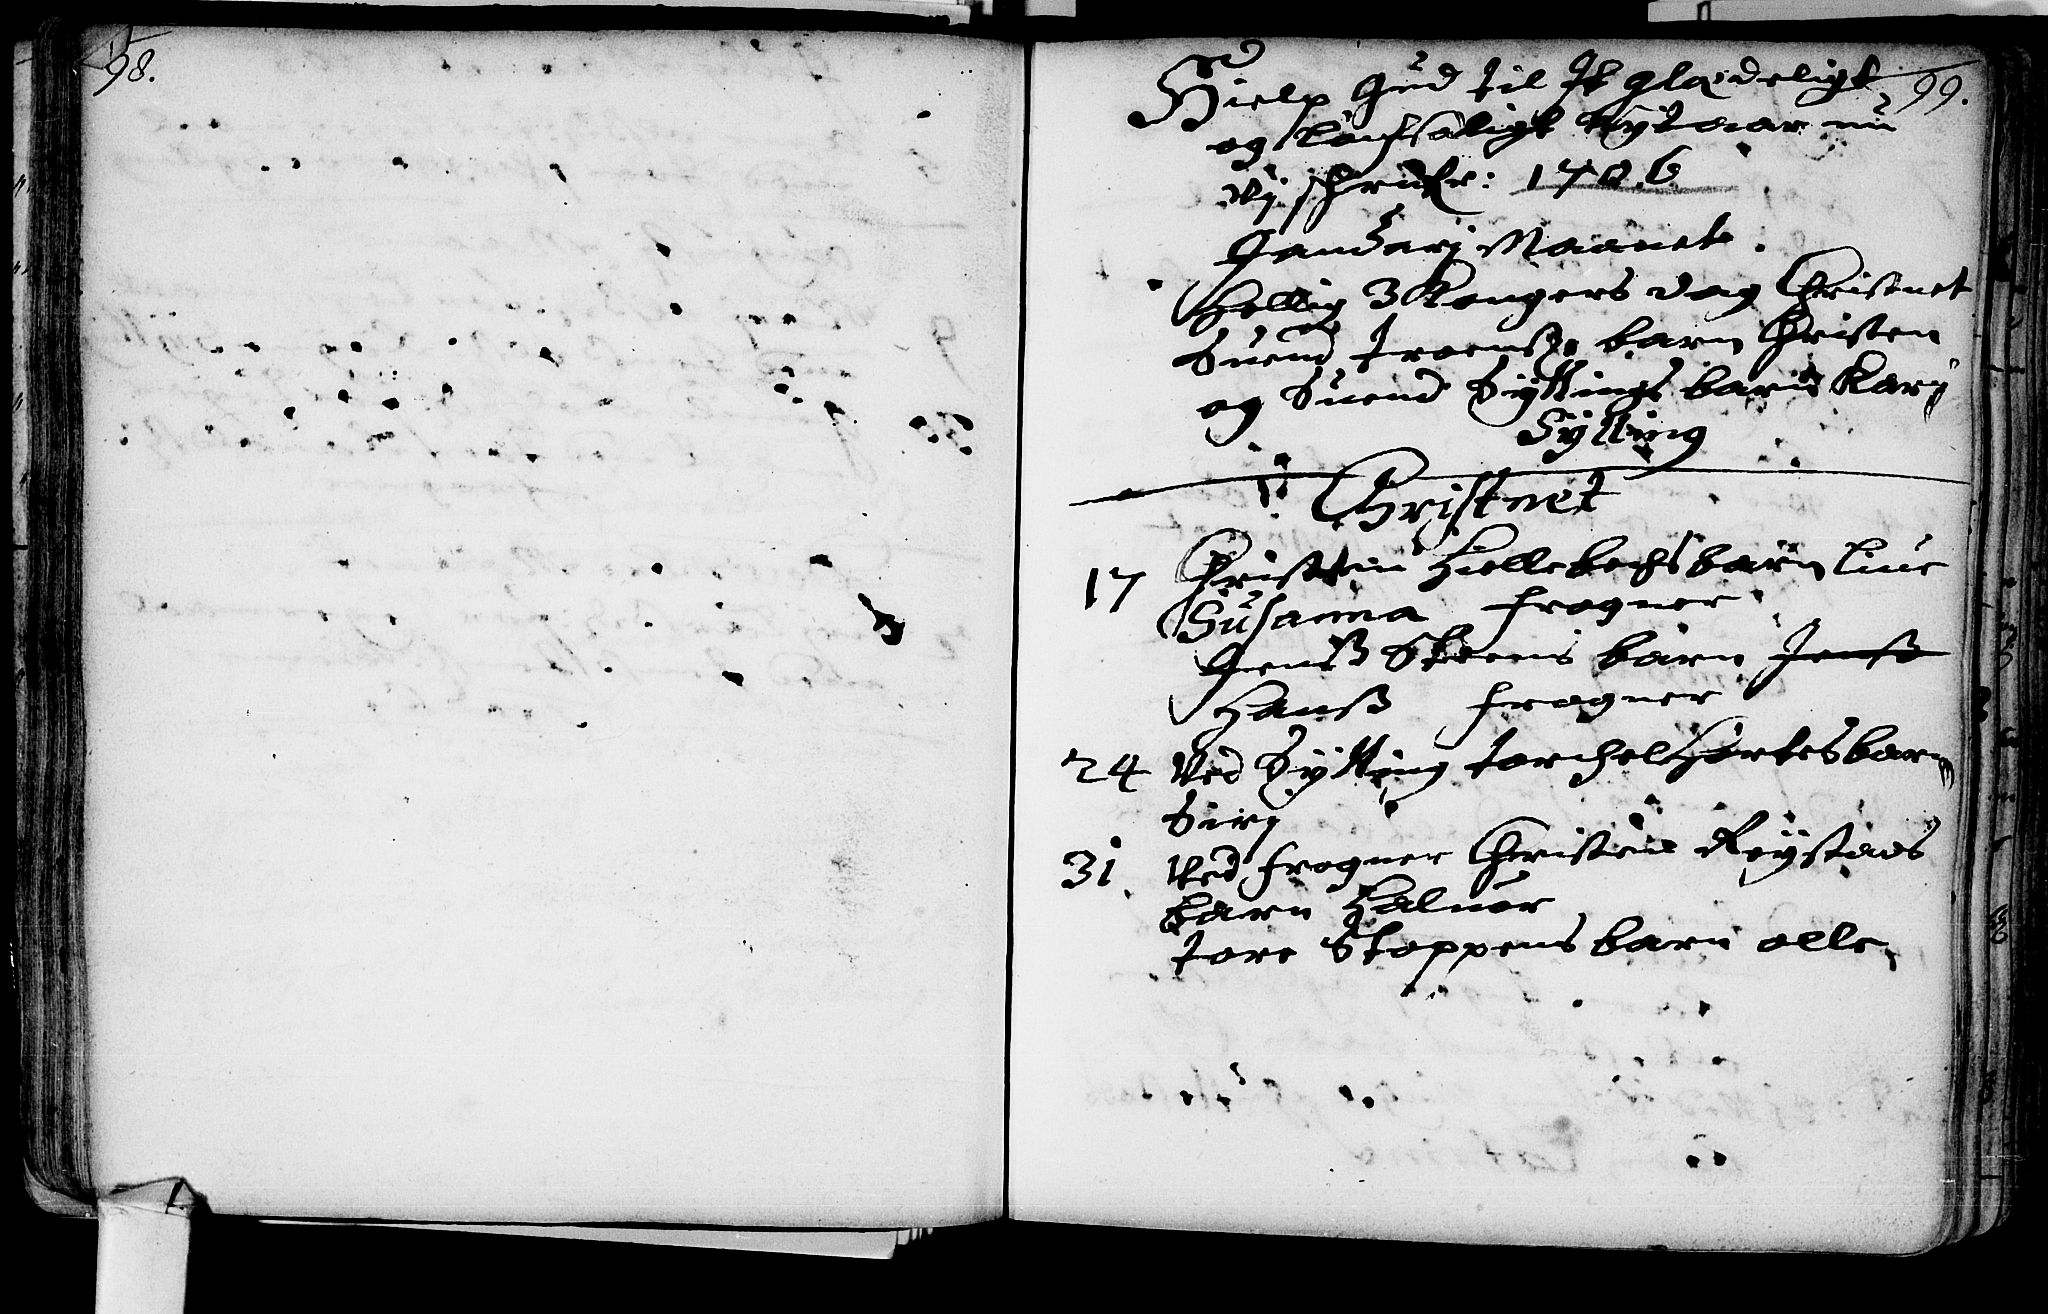 98.
99.
Hielp Gud til It glædeligt
og Løchsaligt Nytaar nu
Vij schrifr: 1706
Januarj Maanet.
Hellig 3 Kongers dag Christnet
Suend Troenß barn Christen
og Suend Syllings barn Karj
Sylling
Christnet
17 Christen Hiellebechs barn Liue
Susanna frogner
Jenß Steens barn Jenß
Hanß frogner
24 Ved Sylling Torchel Hørtes barn
Sirj
31. Ved frogner Christen Røystaes
barn Haluor
Tore Stoppens barn olle